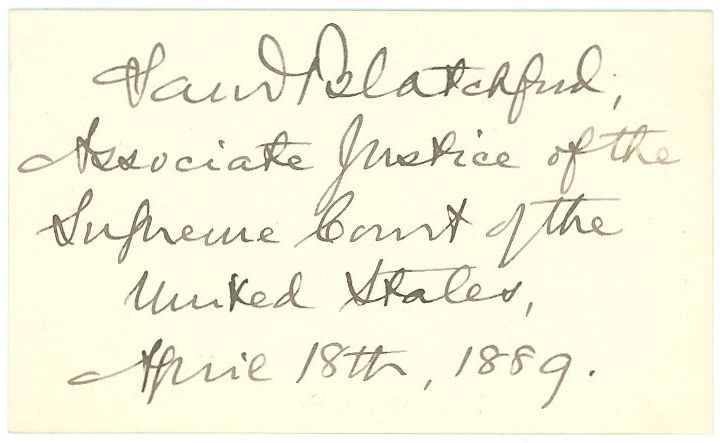 Saml Blatchford,
Associate Justice of the
Supreme Court of the
United States,
April 18th, 1889.